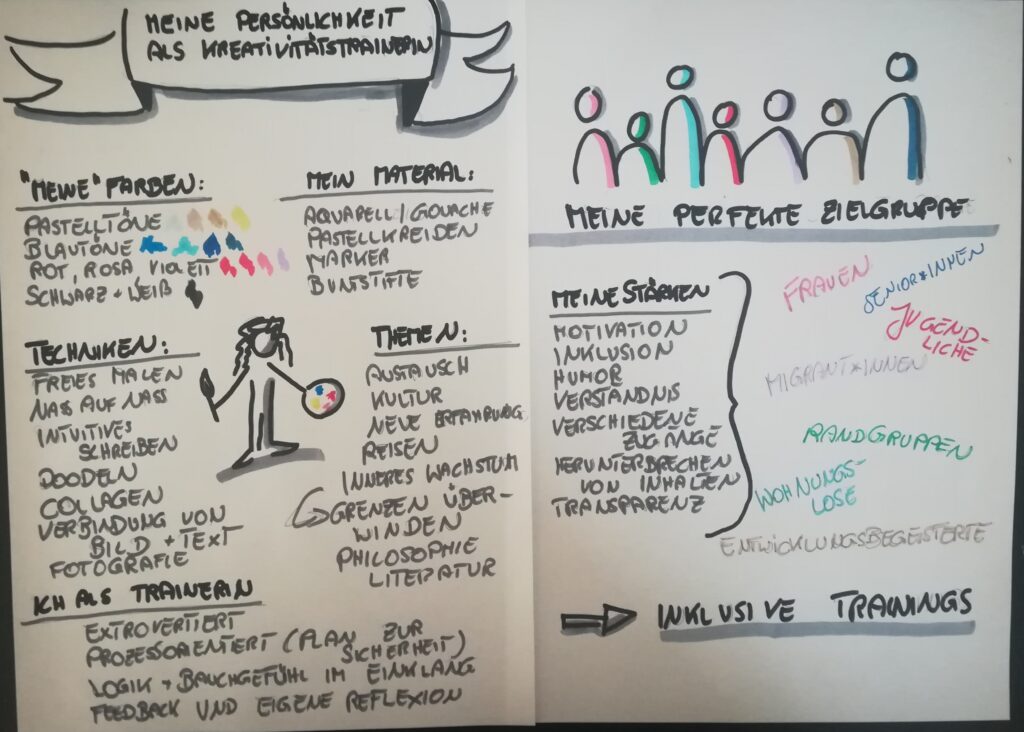 MEINE PERSÖNLICHKEIT
ALS KREATIVITÄTSTRAINERIN
"MEINE" FARBEN:
PASTELLTÖNE
BLAUTÖNE
ROT, ROSA, VIOLETT
SCHWARZ + WEIß
MEIN MATERIAL:
AQUARELL / GOUACHE
PASTELLKREIDEN
MARKER
BUNTSTIFTE
TECHNIKEN:
FREIES MALEN
NASS AUF NASS
INTUITIVES
SCHREIBEN
DOODELN
COLLAGEN
VERBINDUNG VON
BILD + TEXT
FOTOGRAFIE
THEMEN:
AUSTAUSCH
KULTUR
NEUE ERFAHRUNG
REISEN
INNERES WACHSTUM
GRENZEN ÜBER-
WINDEN
PHILOSOPHIE
LITERATUR
ICH ALS TRAINERIN
EXTROVERTIERT
PROZESSORIENTIERT (PLAN ZUR
SICHERHEIT)
LOGIK + BAUCHGEFÜHL IM EINKLANG
FEEDBACK UND EIGENE REFLEXION
MEINE PERFEKTE ZIELGRUPPE
MEINE STÄRKEN
MOTIVATION
INKLUSION
HUMOR
VERSTÄNDNIS
VERSCHIEDENE
ZUGÄNGE
HERUNTERBRECHEN
VON INHALTEN
TRANSPARENZ
FRAUEN
SENIOR*INNEN
JUGEND-
LICHE
MIGRANT*INNEN
RANDGRUPPEN
WOHNUNGS-
LOSE
ENTWICKLUNGSBEGEISTERTE
INKLUSIVE TRAININGS